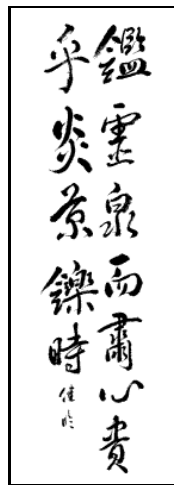 鑑靈泉而肅心貴
乎炎景鑠時